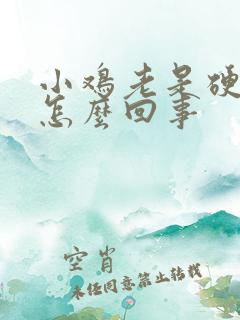 小鸡老呆硬
怎么回事
空肖
未经同意禁止转载